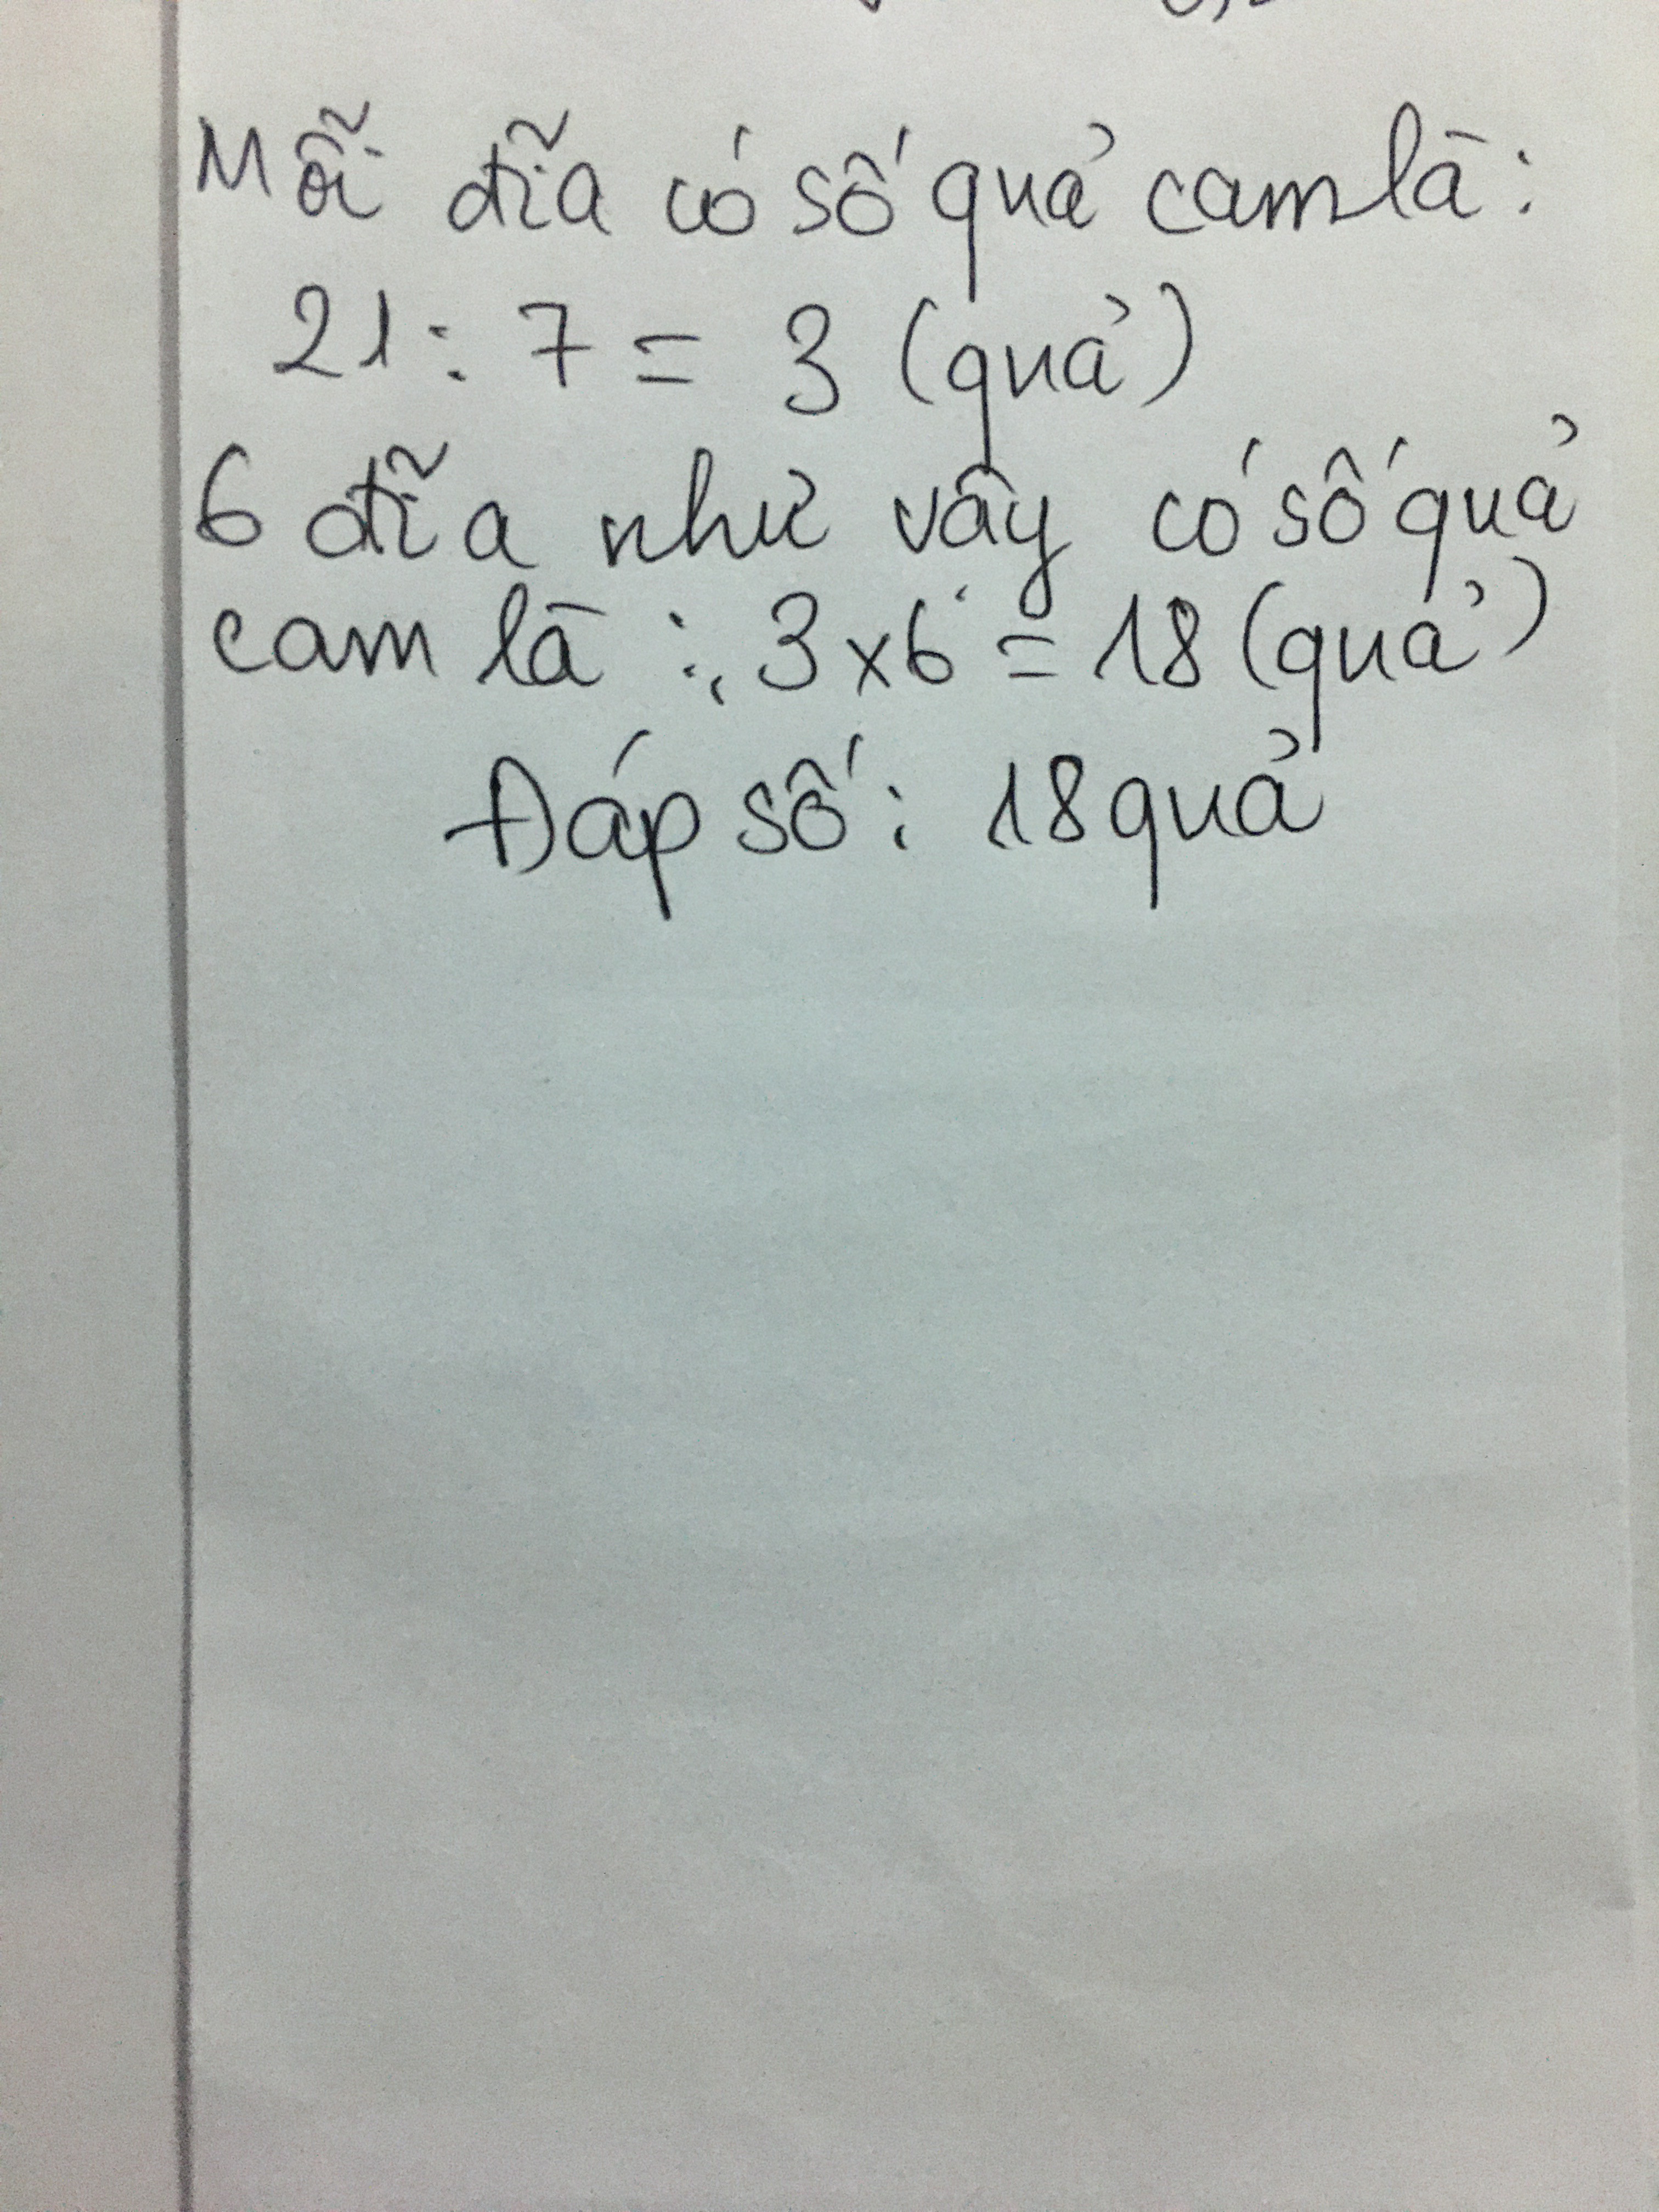 Mỗi đĩa có số quả cam là:
21 : 7 = 3 (quả)
6 đĩa như vậy có số quả
cam là : 3 x 6 = 18 (quả)
Đáp số: 18 quả